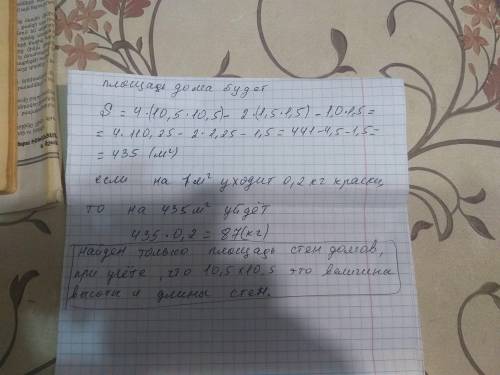 площадь дома будет
S = 4·(10,5·10,5) – 2·(1,5·1,5) – 1,0·1,5 =
= 4·110,25 – 2·2,25 – 1,5 = 441 – 4,5 – 1,5 =
= 435 (м²)
если на 1 м² уходит 0,2 кг краски,
то на 435 м² уйдёт
435·0,2 = 87 (кг)
Найден только площадь стен домов,
при учёте, что 10,5х10,5 это величина
высоты и длины стен.